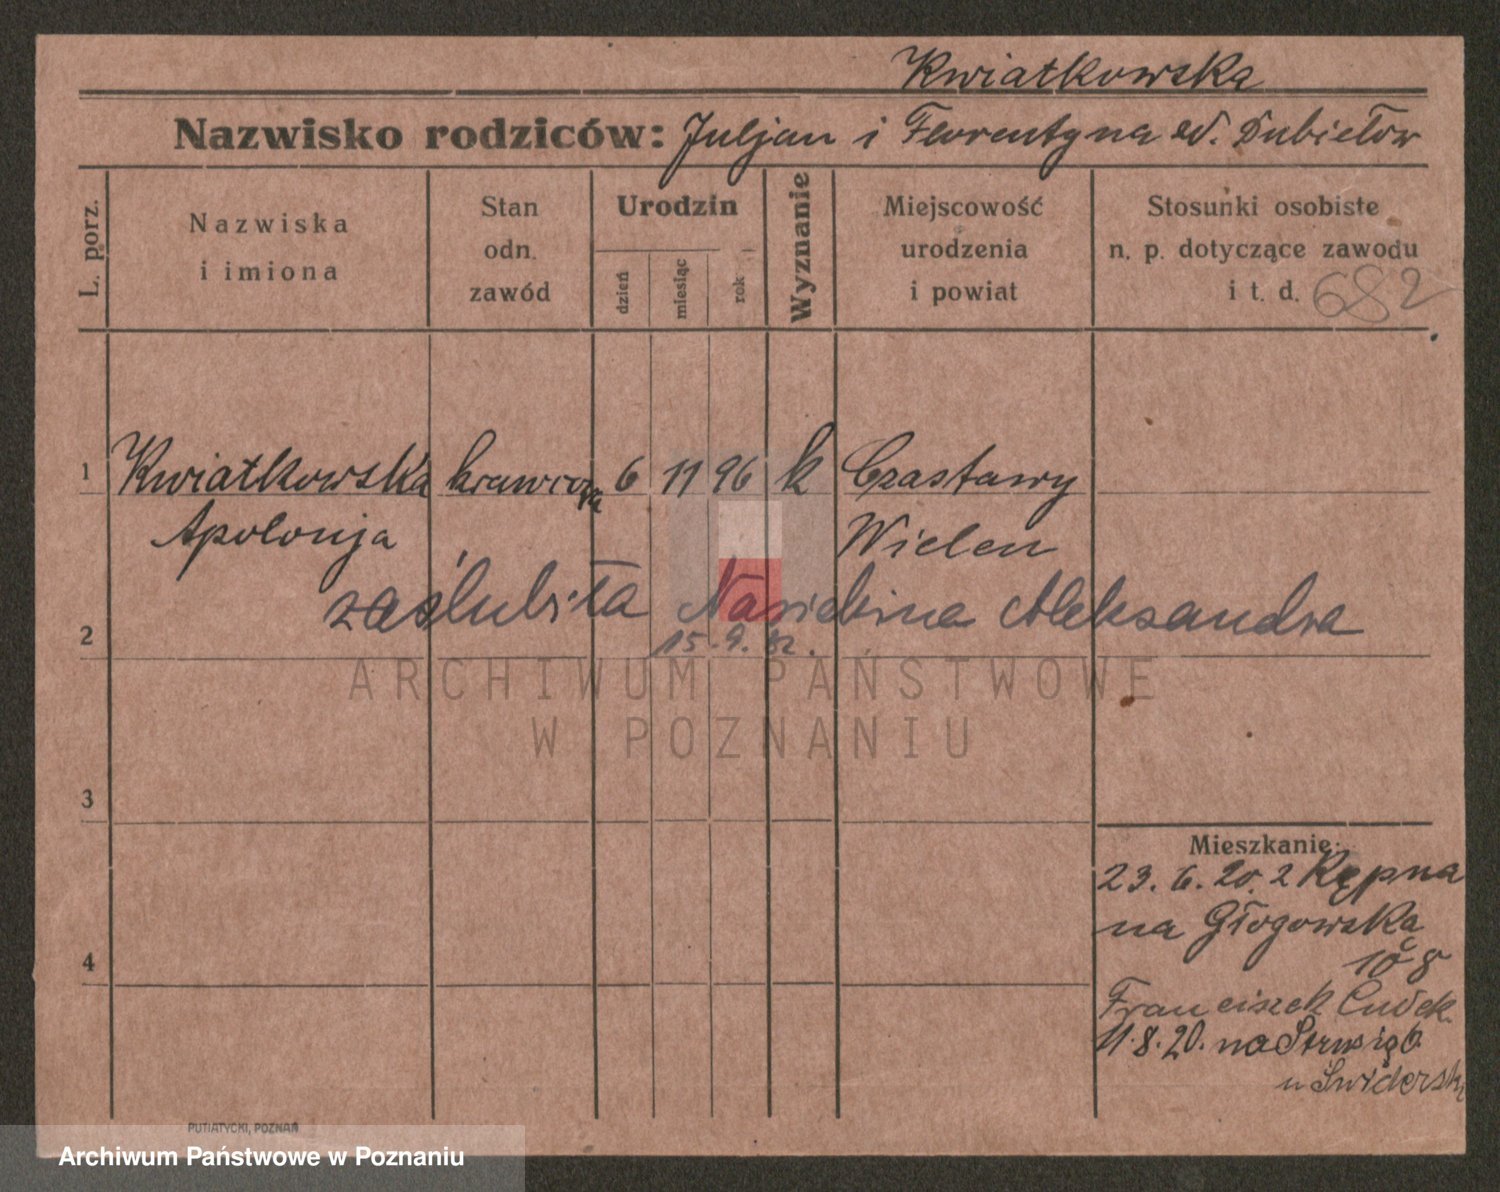 Kwiatkowska
Nazwisko rodziców: Juljan i Florentyna
L. porz.
Nazwiska
i imiona
Stan
odn.
zawód
Urodzin
dzień
miesiąc
rok
Wyznanie
Miejscowość
urodzenia
i powiat
Stosunki osobiste
n. p. dotyczące zawodu
i t. d. 682
1 Kwiatkowska krawcowa 6 11 96 k Czastawy
Apolonja Wielen
zaślubiła Aleksandra
2 15.9.
ARCHIWUM PAŃSTWOWE
W POZNANIU
3
Mieszkanie:
23. 6. 20. z Kępna
na Głogowska
4 108
Franciszek
11.8.20. na Strusią 6
u Świderski
PUTIATYCKI, POZNAŃ
Archiwum Państwowe w Poznaniu